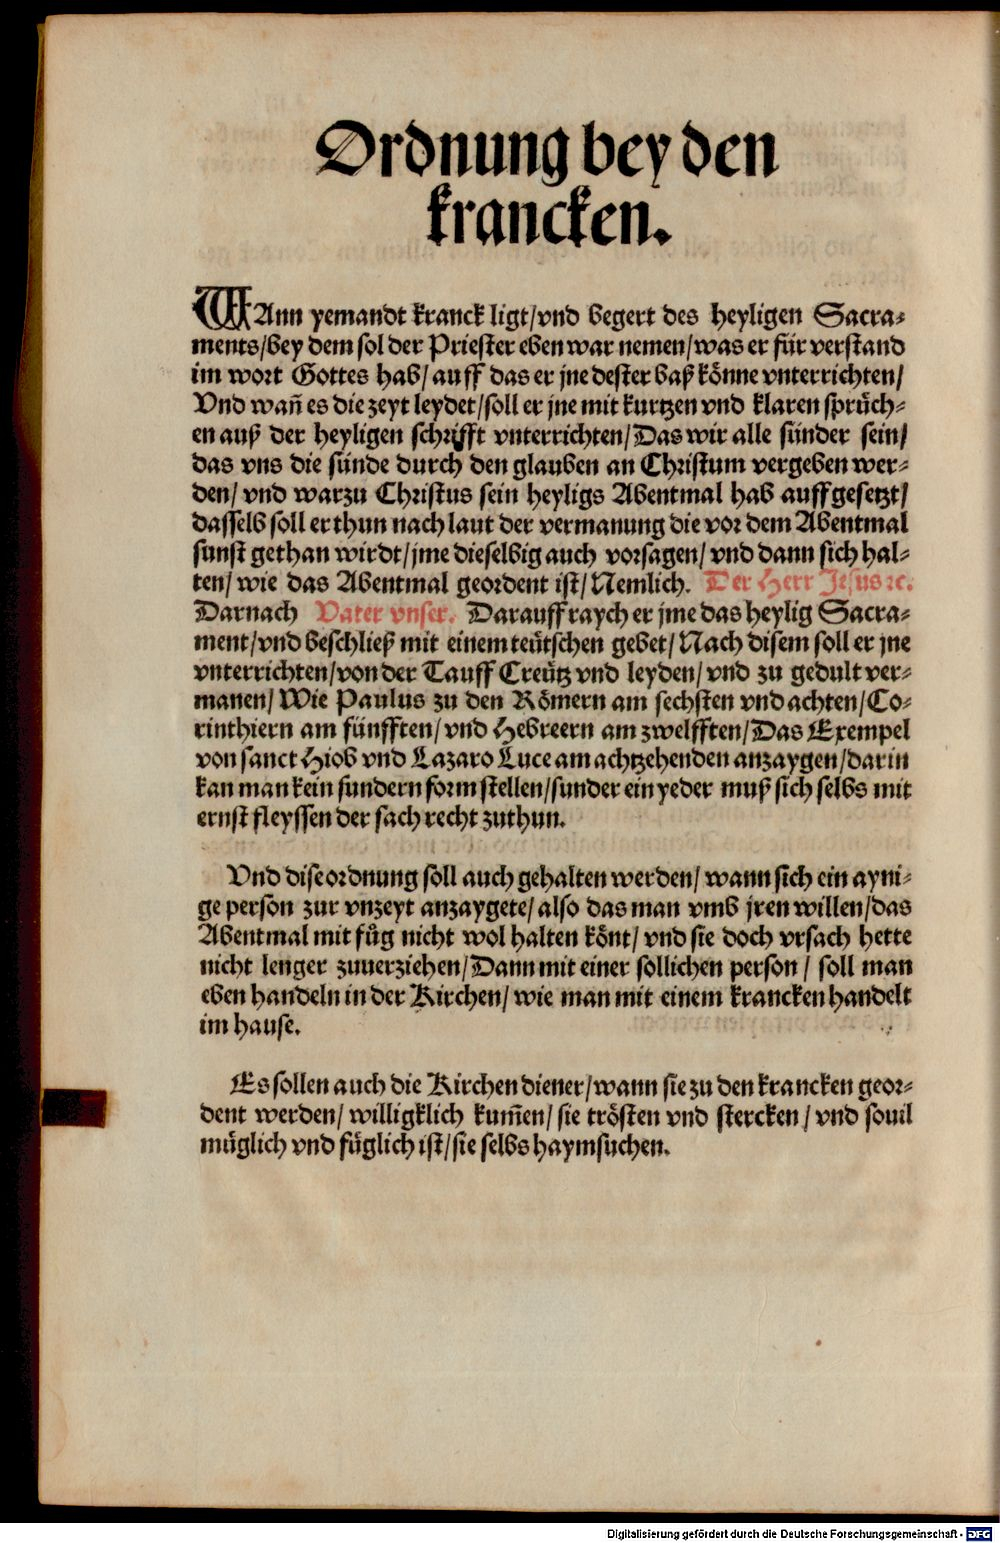 Ordnung bey den
krancken.
WAnn yemandt kranck ligt/vnd begert des heyligen Sacra-
ments/bey dem sol der Priester eben war nemen/was er für verstand
im wort Gottes hab/auff das er jne dester baß könne vnterrichten/
Vnd wañ es die zeyt leydet/soll er jne mit kurtzen vnd klaren sprüch-
en auß der heyligen schrifft vnterrichten/Das wir alle sünder sein/
das vns die sünde durch den glauben an Christum vergeben wer-
den/vnd warzu Christus sein heyligs Abentmal hab auffgesetzt/
dasselb soll er thun nach laut der vermanung die vor dem Abentmal
sunst gethan wirdt/jme dieselbig auch vorsagen/vnd dann sich hal-
ten/wie das Abentmal geordent ist/Nemlich. Der Herr Jesus ꝛc.
Darnach Vater vnser. Darauff raych er jme das heylig Sacra-
ment/vnd beschließ mit einem teütschen gebet/Nach disem soll er jne
vnterrichten/von der Tauff Creütz vnd leyden/vnd zu gedult ver-
manen/Wie Paulus zu den Römern am sechsten vnd achten/Co-
rinthiern am fünfften/vnd Hebreern am zwelfften/Das Exempel
von sanct Hiob vnd Lazaro Luce am achtzehenden anzaygen/darin
kan man kein sundern form stellen/sunder ein yeder muß sich selbs mit
ernst fleyssen der sach recht zuthun.
Vnd dise ordnung soll auch gehalten werden/wann sich ein ayni-
ge person zur vnzeyt anzaygete/also das man vmb jren willen/das
Abentmal mit fůg nicht wol halten könt/vnd sie doch vrsach hette
nicht lenger zuuerziehen/Dann mit einer sollichen person/soll man
eben handeln in der Kirchen/wie man mit einem krancken handelt
im hause.
Es sollen auch die Kirchen diener/wann sie zu den krancken geor-
dent werden/willigklich kum̃en/sie trösten vnd stercken/vnd souil
müglich vnd füglich ist/sie selbs haymsuchen.
Digitalisierung gefördert durch die Deutsche Forschungsgemeinschaft - DFG